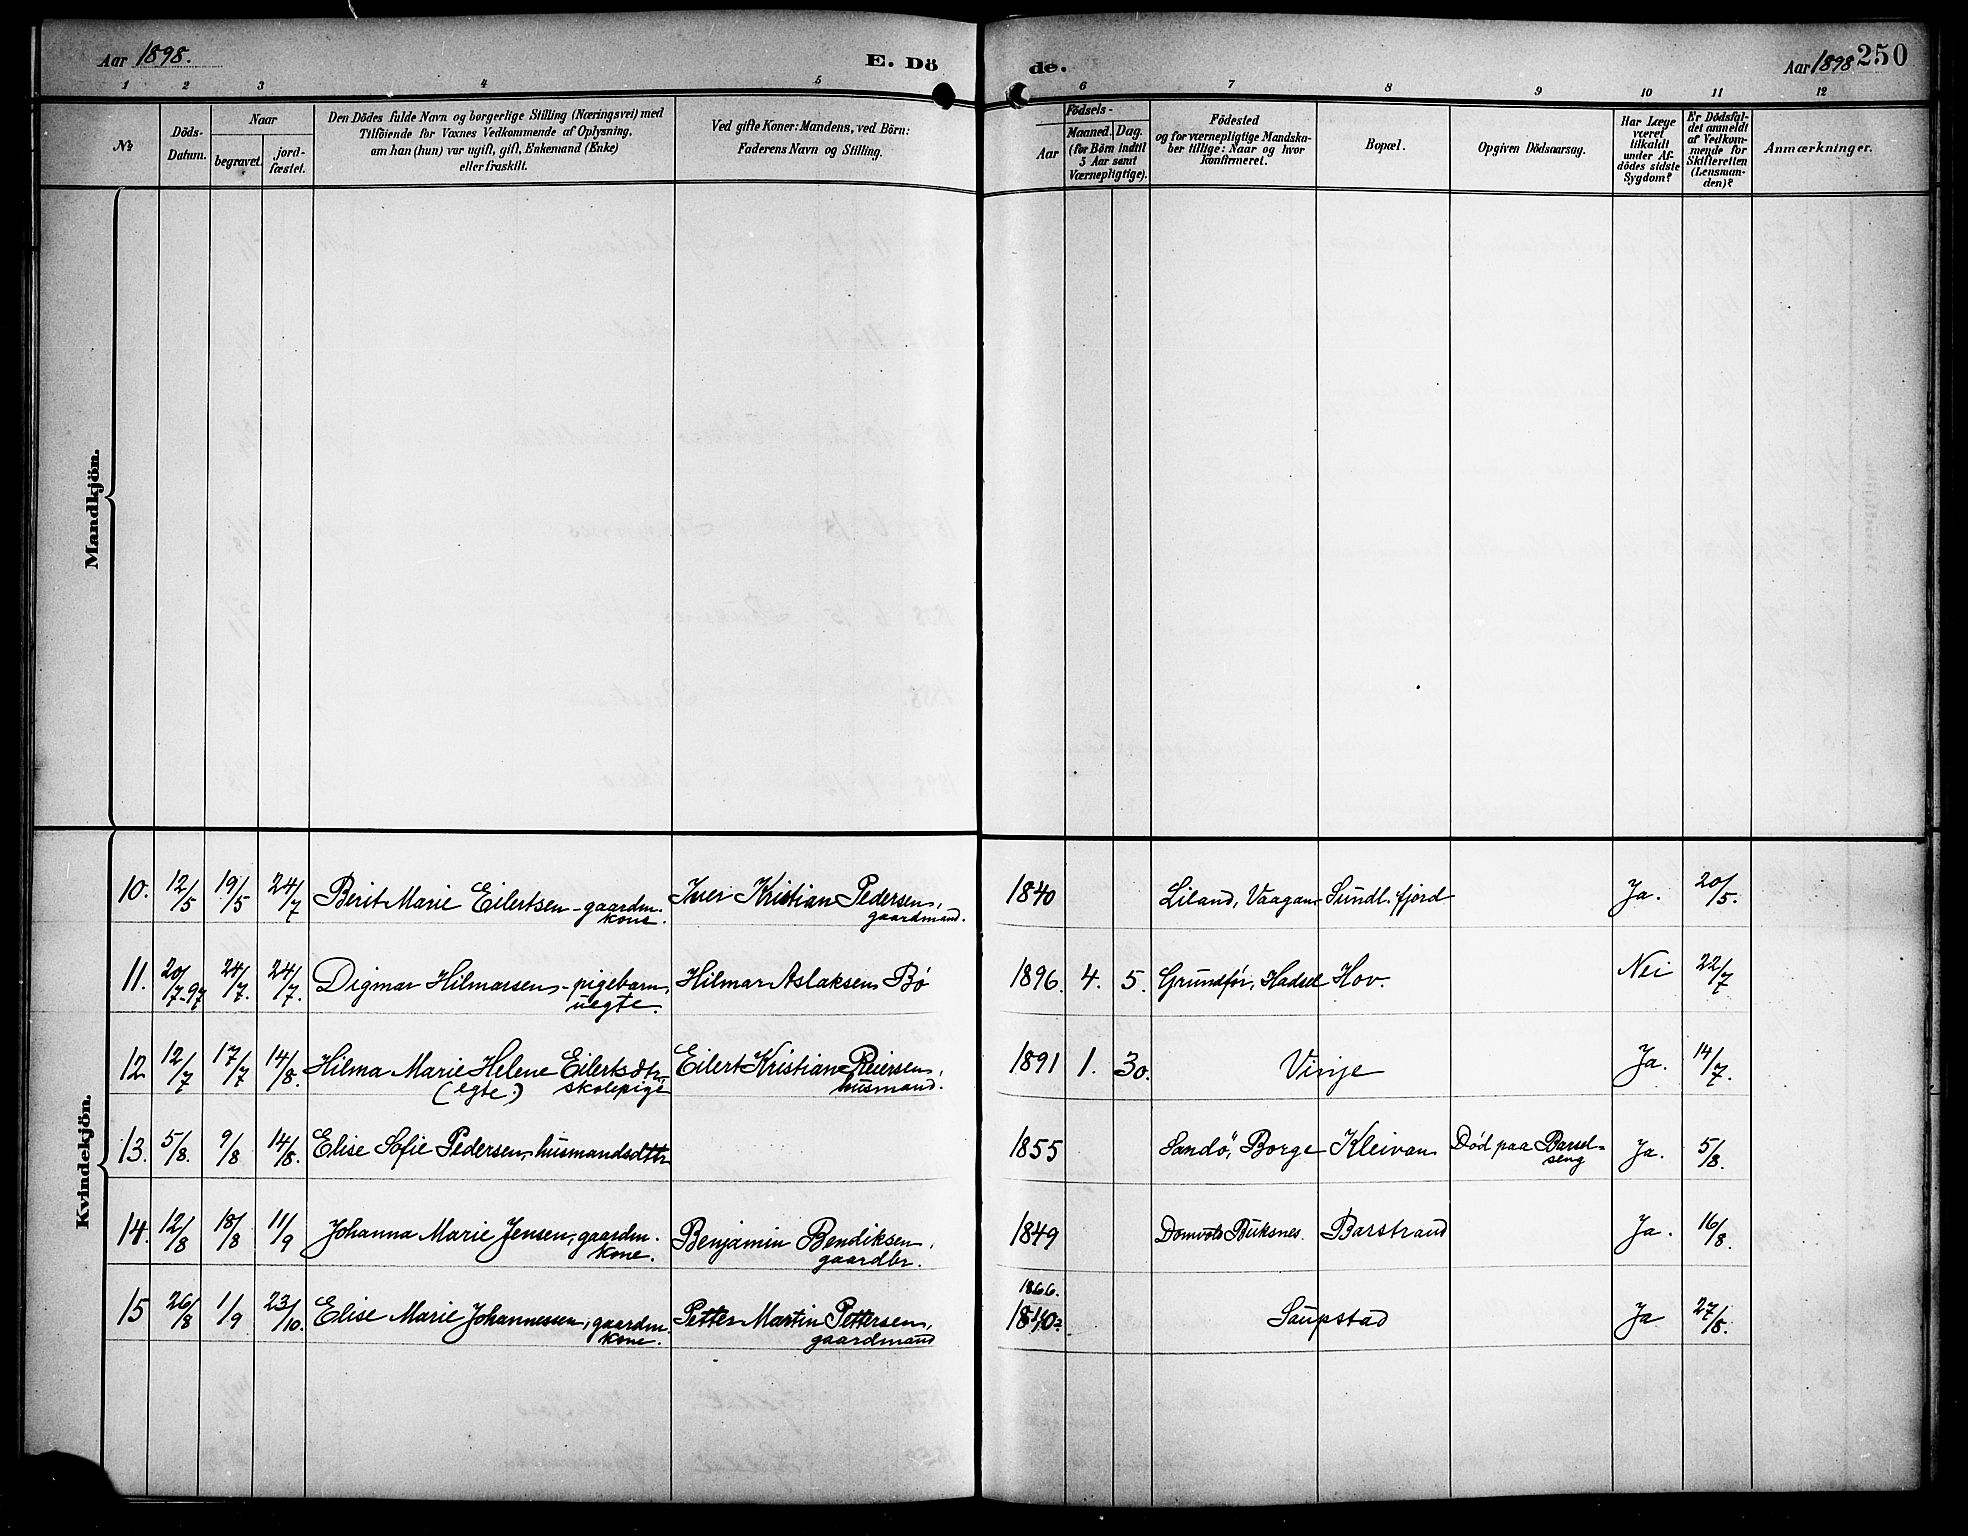 Aar 1898. E. Dö de. Aar 1898 250
1 2 3 4 5 6 7 8 9 10 11 12
№
Döds-
Datum.
Naar
begravet.
jord-
fæstet.
Den Dödes fulde Navn og borgerlige Stilling (Næringsvei) med
Tilföiende for Voxnes Vedkommende af Oplysning,
om han (hun) var ugift, gift, Enkemand (Enke)
eller fraskilt.
Ved gifte Koner: Mandens, ved Börn:
Faderens Navn og Stilling.
Födsels-
Aar
Maaned. Dag.
(for Börn indtil
5 Aar samt
Værnepligtige).
Födested
og for værnepligtige Mandska-
ber tillige: Naar og hvor
konfirmeret.
Bopæl.
Opgiven Dödsaarsag.
Har Læge
været
tilkaldt
under Af-
dödes sidste
Sygdom?
Er Dödsfal-
det anmeldt
af Vedkom-
mende for
Skifteretten
(Lensman-
den)?
Anmærkninger.
Mandkjön.
Kvindekjön.
10. 12/5 19/5 24/7 Berit Marie Eilertsen - gaardm. Iver Kristian Pedersen, 1840 Liland, Vaagan Sundl.fjord Ja. 20/5.
kone. gaardmand.
11. 20/7-97 24/7. 24/7. Digmar Hilmarsen - pigebarn, Hilmar Aslaksen Bø 1896. 4. 5. Grundfør, Hadsel Hov. Nei 22/7
uegte.
12 12/7 17/7 14/8. Hilma Marie Helene Eilertsdtr, Eilert Kristian Reiersen, 1891 1. 30. Vinje Ja. 14/7.
(egte.) skolepige husmand.
13. 5/8. 9/8 14/8. Elise Sofie Pedersen, husmandsdttr 1855 Sandö, Borge Kleivan Död paa Barsel- Ja. 5/8.
seng
14. 12/8 18/8 11/9 Johanna Marie Jensen, gaardm. Benjamin Bendiksen, 1849 Buksnes. Barstrand Ja. 16/8.
kone. gaardbr.
1866.
15 26/8 1/9 23/10. Elise Marie Johannessen, gaardm. Petter Martin Pettersen, Saupstad Ja 27/8.
kone. gaardmand